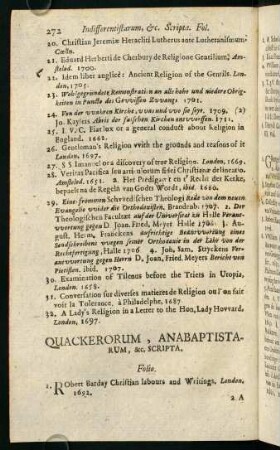 272 Indifferentistarum, &c. Scripta. Fol.
20. Christian Jeremiæ Heracliti Lutherus ante Lutheranismum
21. Edoard Herberti de Cherbury de Religione Gentilium, Am-
stelod. 1700.
22. Idem liber anglicè: Ancient Religion of the Gentils. Lon-
den, 1705.
23. Wohlgegründete Remonstration an alle hohe und niedere Obrig-
keiten in Puncto des Gewissens Zwangs 1701.
24. Von der wahren Kirche, was und wo sie sey. 1709. (2)
Jo. Kaylers Abris der falschen Kirchen 1711.
25. I. V. C. Fiat lux or a general conduct about Religion in
England. 1662.
26. Gentleman's Religion vvith the grounds and reasons of it
London, 1697.
27. S S or a discovery of true Religion. London, 1669.
28. Veritas Pacifica seu fidei Christianæ delineatio.
Amstelod. 1651. 2. Het Recht der Ketke,
bepaelt na de Regels van Godts Wordt, ibid. 1680.
29. Eine frommen Schwedischen Theologi Rede von dem neuen
Evangelie wieder die Orthodoxisten, Bracchin. 1707. 2. Der
Theologischen Facultæt auf der Universitæt zu Halle Veran-
wortung gegen D. Joan. Fried. Mayer Halle 1706. 3.
August. Herm. Franckens Aufrichtige Beantwortung eines
Sendschreibens wegen seiner Orthodoxie in der Lehr von der
Rechtfertigung, Halle 1706 4. Joh. Sam. Stryckens Ver-
antwortung gegen Herrn D. Joan. Fried. Meyers Bericht von
Pietisten. ibid. 1707.
30. Examination of Tilenus before the Triers in Utopia,
London. 1658.
31. Conversation sur diverses matieres de Religion ou l'on fait
voir la Tolerance, à Philadelphe, 1687
32. A Lady's Religion in a Letter to the Hon. Lady Hovvard.
London, 1697.
QUACKERORUM, ANABAPTISTA-
RUM, &c. SCRIPTA.
Folio.
1. RObert Barclay Christian labours and Writings, London,
1692.
2 A